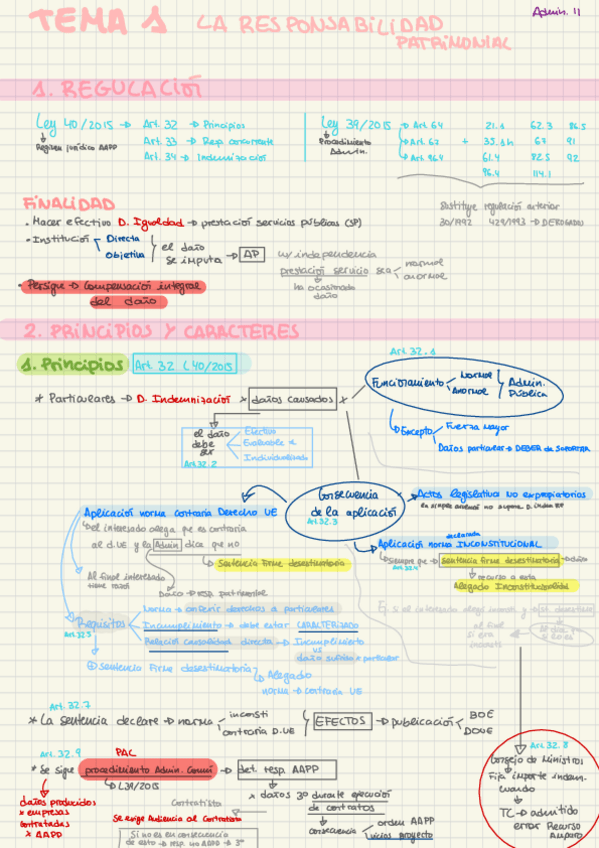 Admin. II
TEMA 1 LA RESPONSABILIDAD
PATRIMONIAL
1. REGULACIÓN
Ley 40/2015 → Art. 32 → Principios
Régimen Jurídico AAPP
Art. 33 → Resp. concurrente
Art. 34 → Indemnización
Ley 39/2015 → Art. 64
Procedimiento Admin.
→ Art. 67 +
→ Art. 96.4
21.1 62.3 86.5
35.1h 67 91
61.4 82.5 92
96.4 114.1
Sustituye regulación anterior
30/1992 429/1993 → DEROGADAS
FINALIDAD
· Hacer efectivo D. Igualdad → prestación servicios públicas (SP)
· Institución Directa
Objetiva
el daño
se imputa → AP
w/ independencia
prestación servicio sea normal
anormal
ha ocasionado
daño
· Persigue → Compensación integral
del daño
2. PRINCIPIOS Y CARACTERES
1. Principios Art 32 L40/2015
Art. 32.1
* Particulares → D. Indemnización * daños causados x
Funcionamiento Normal
Anormal
Admin.
Pública
Excepto Fuerza mayor
Daños particular → DEBER de soportar
el daño
debe
ser
Art. 32.2
Efectivo
Evaluable €
Individualizado
Consecuencia
de la aplicación
Art 32.3
Actos legislativa no expropiatorios
Aplicación norma contraria Derecho UE
Del interesado alega que es contraria
al d.UE y la Admin dice que no
Sentencia firme desestimatoria
Al final interesado
tiene razón
Daño → resp. patrimonial
declarada
Aplicación norma INCONSTITUCIONAL
Siempre que → sentencia firme desestimatoria → daño
Art. 32.4
recurso a esta
Alegado Inconstitucionalidad
Requisitos
Art 32.5
Norma → conferir derechos a particulares
Incumplimiento → debe estar CARACTERIZADO
Relación causalidad directa → Incumplimiento
vs
daño sufrido x particular
Sentencia firme desestimatoria
Alegado
norma → contraria UE
Ej. si el interesado alegó inconsti y
al final
sí era
inconsti
Art. 32.7
* La sentencia declare → norma inconsti
contraria D.UE
EFECTOS → publicación BOE
DOUE
Art. 32.8
Consejo de Ministros
Fija importe indemn.
cuando
TC → admitido
error Recurso
Amparo
Art. 32.9
PAC
* Se sigue procedimiento Admin. Común → det. resp. AAPP
L39/2015
daños producidos
x empresas
contratadas
x AAPP
* daños 3º durante ejecución
de contratos
consecuencia orden AAPP
vicios proyecto
Contratista
Se exige Audiencia al Contratista
Si no es en consecuencia
de esto → resp. no AAPP → 3º